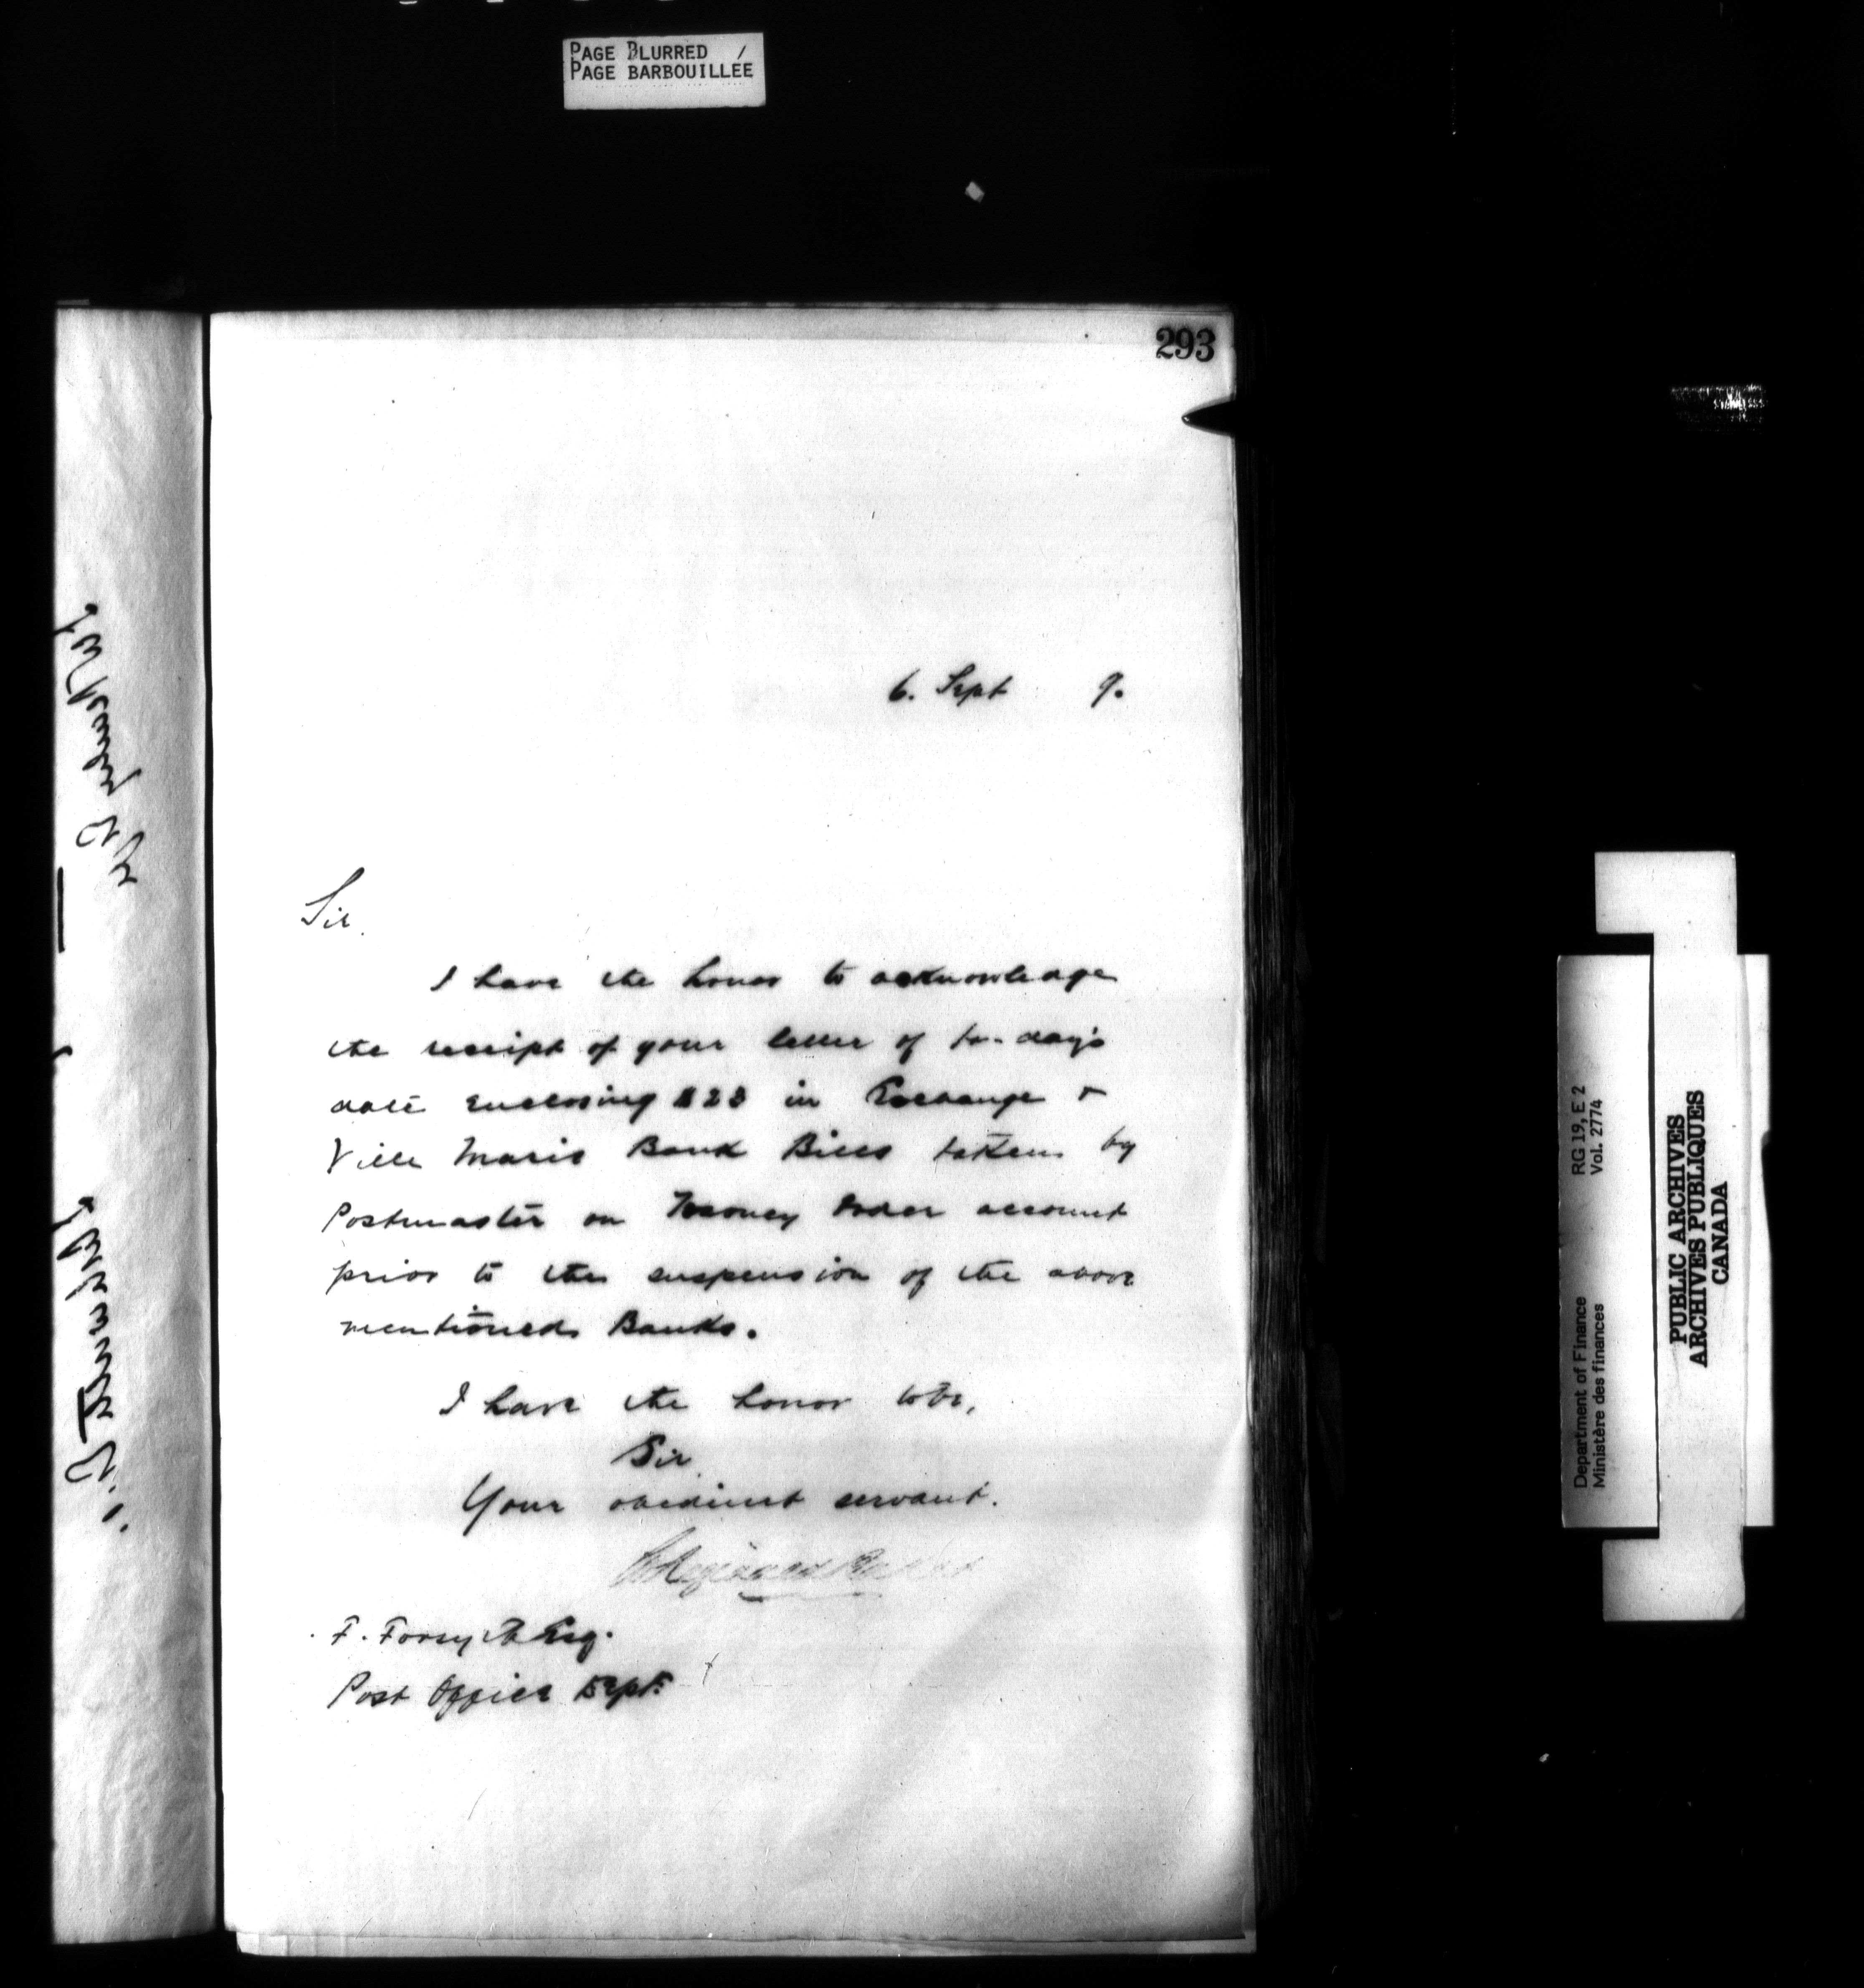 PAGE BLURRED /
PAGE BARBOUILLÉE
293
6. Sept 9.
Sir.
I have the honor to acknowledge
the receipt of your letter of to-day's
date enclosing $23 in Exchange &
Ville Marie Bank Bills taken by
Postmaster on Money Order account
prior to the suspension of the above
mentioned Banks.
I have the honor to be,
Sir
Your obedient servant.
F. Forsyth Esq.
Post Office Dept.
Department of Finance RG 19, E 2
Ministère des finances Vol. 2774
PUBLIC ARCHIVES
ARCHIVES PUBLIQUES
CANADA